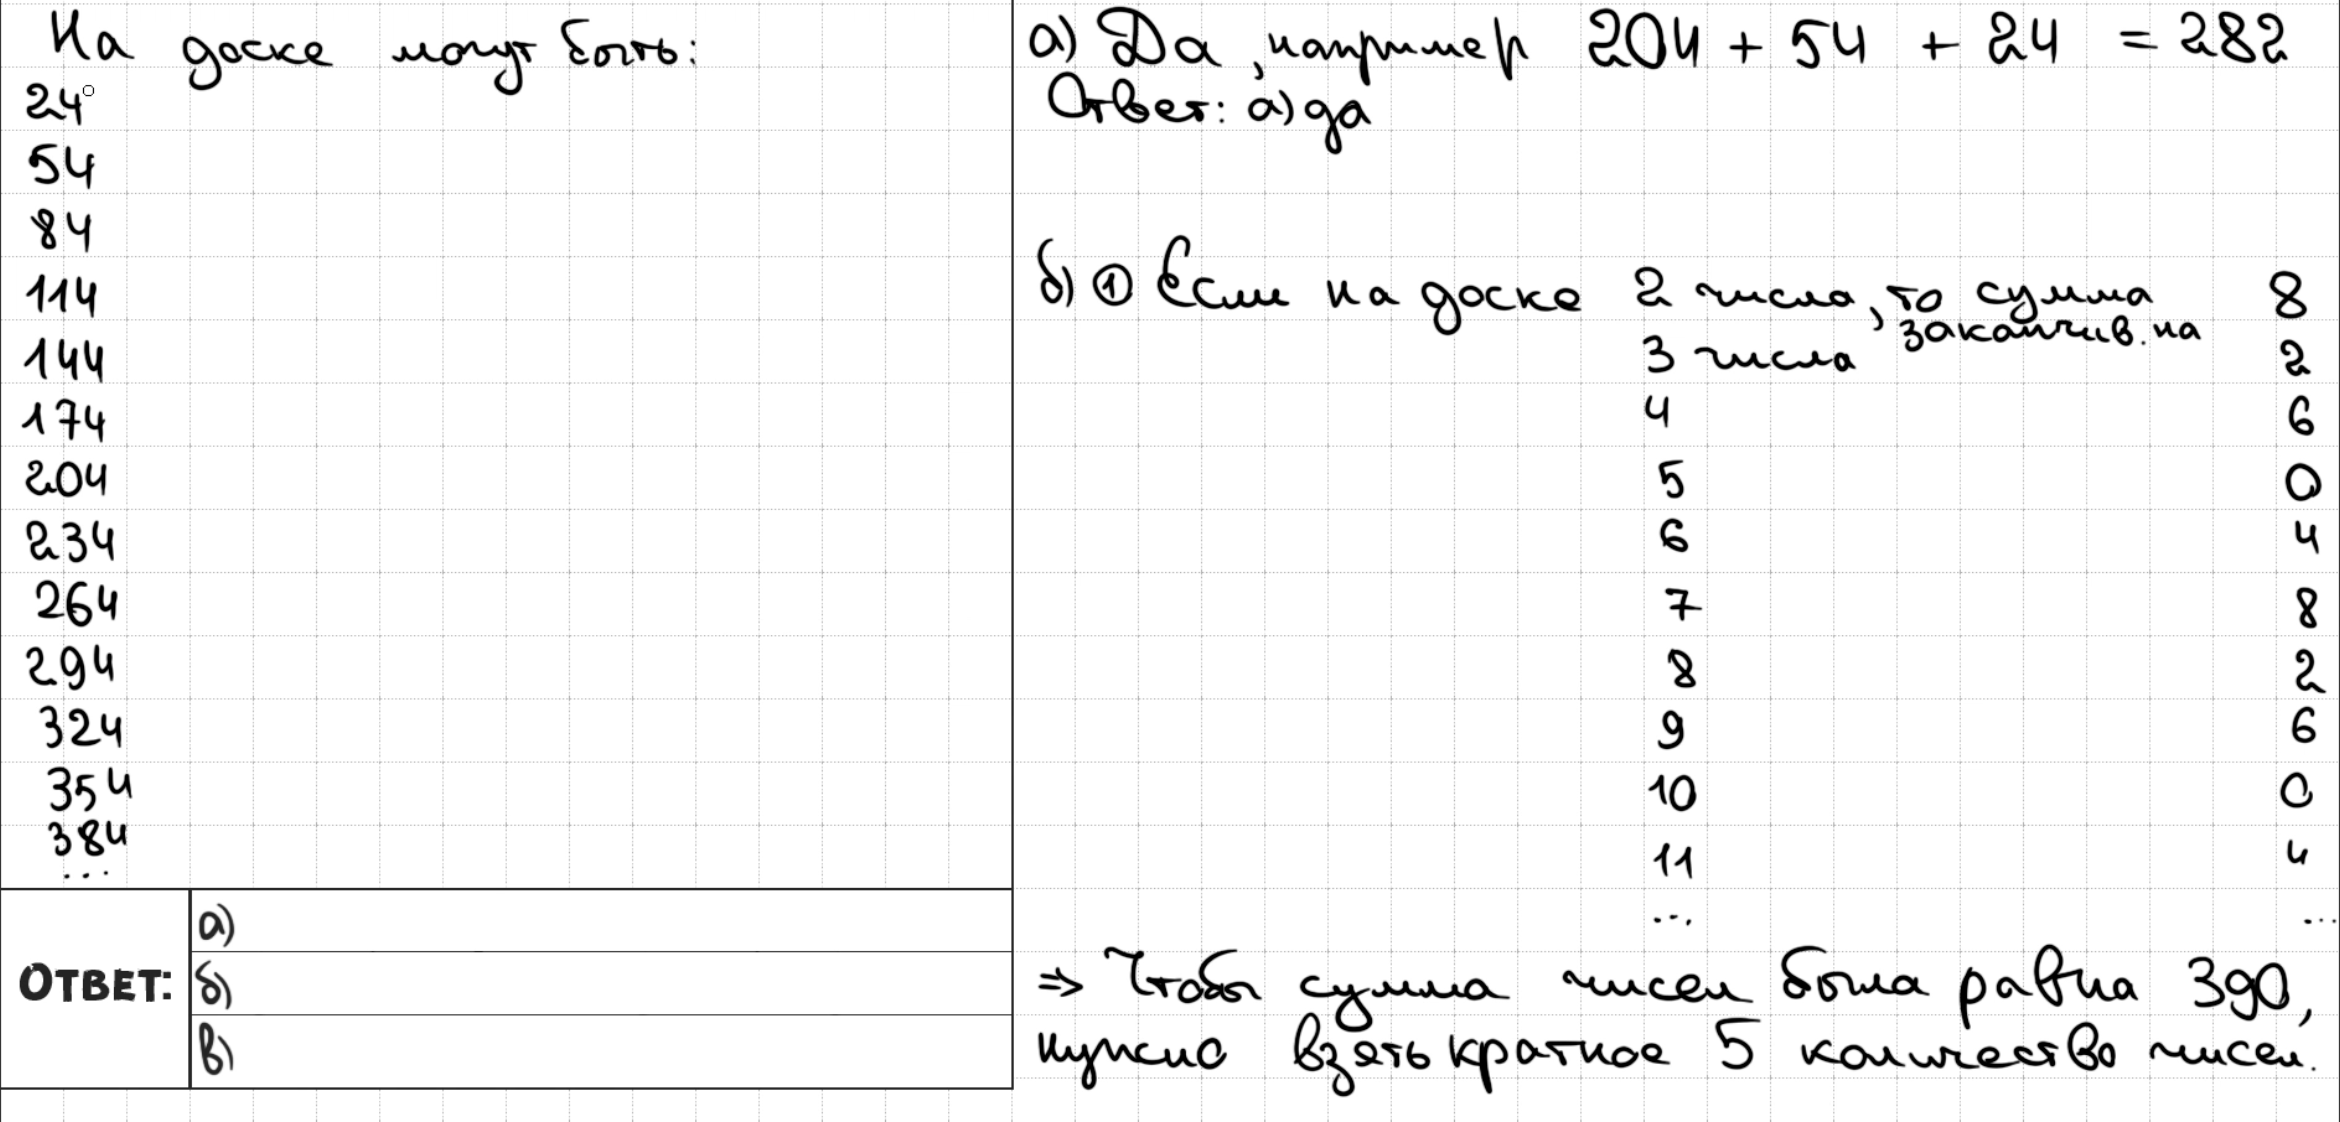 На доске могут быть:
24
54
84
114
144
174
204
234
264
294
324
354
384
...
ОТВЕТ:
а)
б)
в)
а) Да, например 204 + 54 + 24 = 282
Ответ: а) да
б) ① Если на доске 2 числа, то сумма заканчив. на 8
3 числа 2
4 6
5 0
6 4
7 8
8 2
9 6
10 0
11 4
... ...
⇒ Чтобы сумма чисел была равна 390,
нужно взять кратное 5 количество чисел.